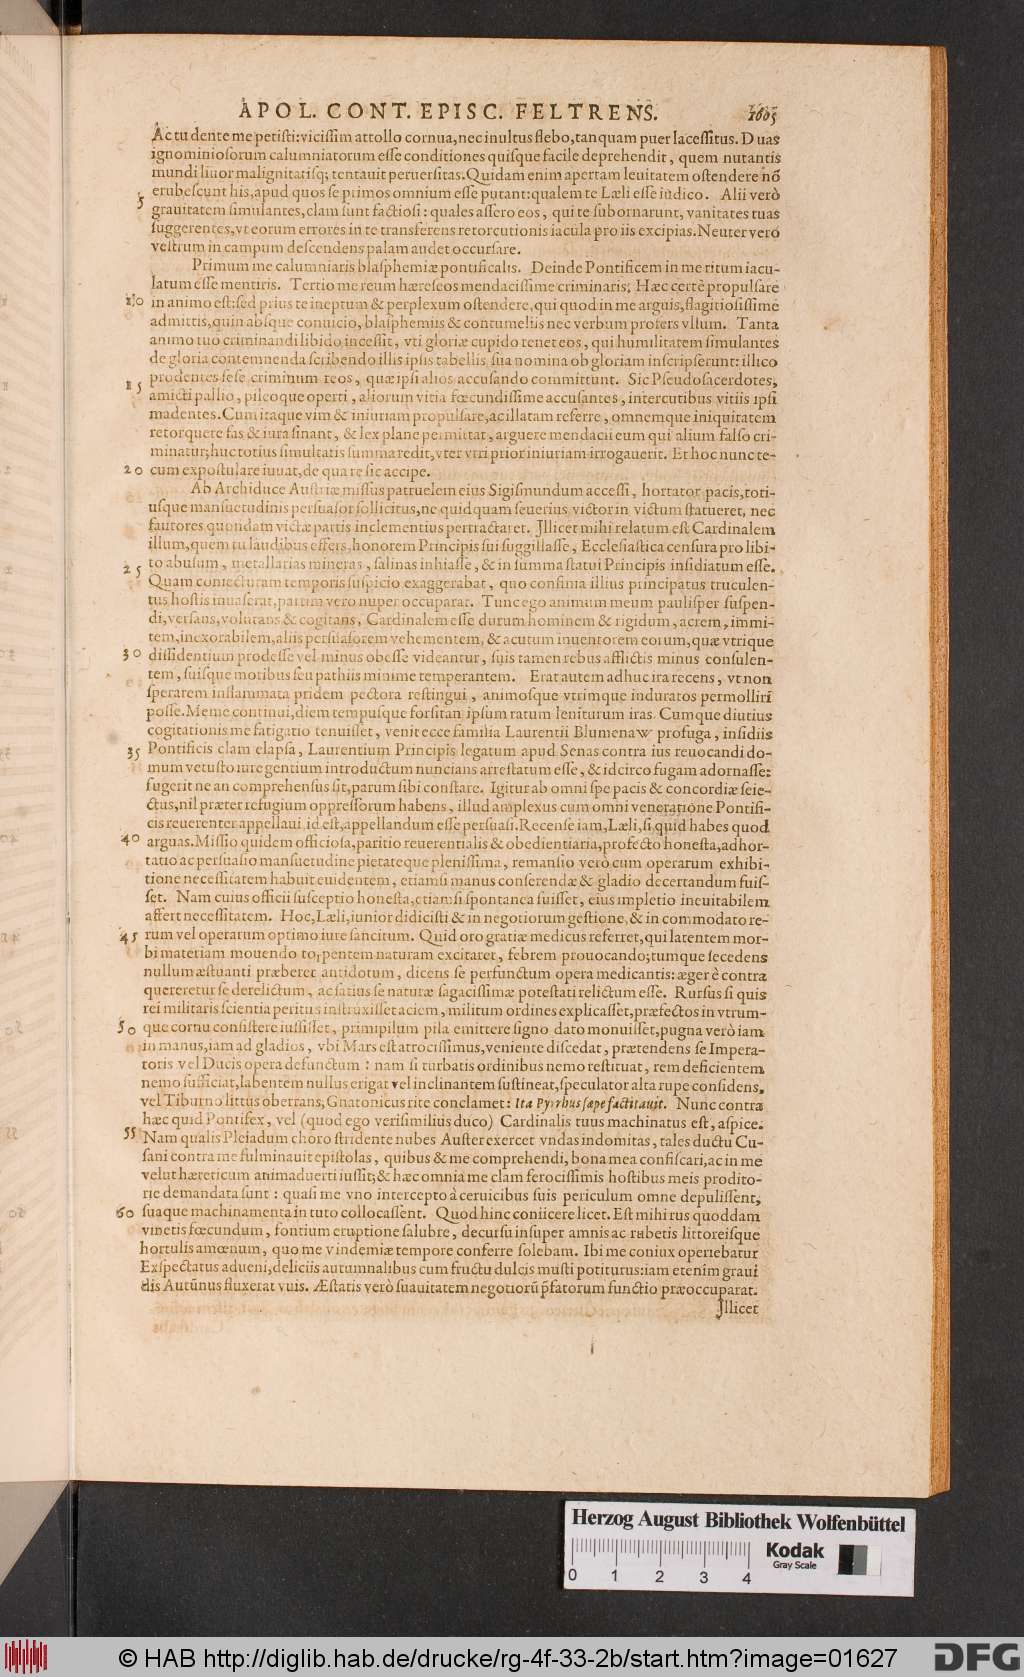 APOL. CONT. EPISC. FELTRENS. 1605
Ac tu dente me petisti: vicissim attollo cornua, nec inultus flebo, tanquam puer lacessitus. Duas
ignominiosorum calumniatorum esse conditiones quisque facile deprehendit, quem nutantis
mundi liuor malignitatisq; tentauit peruersitas. Quidam enim apertam leuitatem ostendere nõ
erubescunt his, apud quos se primos omnium esse putant: qualem te Læli esse iudico. Alii verò
5 grauitatem simulantes, clam sunt factiosi: quales assero eos, qui te subornarunt, vanitates tuas
suggerentes, vt eorum errores in te transferens retorcutionis iacula pro iis excipias. Neuter verò
vestrum in campum descendens palam audet occursare.
Primum me calumniaris blasphemiæ pontificalis. Deinde Pontificem in me ritum iacu-
latum esse mentiris. Tertio me reum hæreseos mendacissime criminaris; Hæc certè propulsare
10 in animo est: sed prius te ineptum & perplexum ostendere, qui quod in me arguis, flagitiosissimè
admittis, quin absque conuicio, blasphemiis & contumeliis nec verbum profers vllum. Tanta
animo tuo criminandi libido incessit, vti gloriæ cupido tenet eos, qui humilitatem simulantes
de gloria contemnenda scribendo illis ipsis tabellis sua nomina ob gloriam inscripserunt: illico
prodentes sese criminum reos, quæ ipsi alios accusando committunt. Sic Pseudosacerdotes,
15 amicti pallio, pileoque operti, aliorum vitia fœcundissime accusantes, intercutibus vitiis ipsi
madentes. Cum itaque vim & iniuriam propulsare, ac illatam referre, omnemque iniquitatem
retorquere fas & iura sinant, & lex plane permittat, arguere mendacii eum qui alium falso cri-
minatur; huc totius simultatis summa redit, vter vtri prior iniuriam irrogauerit. Et hoc nunc te-
20 cum expostulare iuuat, de qua re sic accipe.
Ab Archiduce Austriæ missus patruelem eius Sigismundum accessi, hortator pacis, toti-
usque mansuetudinis persuasor sollicitus, ne quidquam seuerius victor in victum statueret, nec
fautores quondam victæ partis inclementius pertractaret. Jllicet mihi relatum est Cardinalem
illum, quem tu laudibus effers, honorem Principis sui suggillasse, Ecclesiastica censura pro libi-
25 to abusum, metallarias mineras, salinas inhiasse, & in summa statui Principis insidiatum esse.
Quam coniecturam temporis suspicio exaggerabat, quo confinia illius principatus truculen-
tus hostis inuaserat, partim vero nuper occuparat. Tunc ego animum meum paulisper suspen-
di, versans, volutans & cogitans, Cardinalem esse durum hominem & rigidum, acrem, immi-
tem, inexorabilem, aliis persuasorem vehementem, & acutum inuentorem eorum, quæ vtrique
30 dissidentium prodesse vel minus obesse videantur, suis tamen rebus afflictis minus consulen-
tem, suisque motibus seu pathiis minime temperantem. Erat autem adhuc ira recens, vt non
sperarem inflammata pridem pectora restingui, animosque vtrimque induratos permolliri
posse. Meme continui, diem tempusque forsitan ipsum ratum leniturum iras. Cumque diutius
cogitationis me fatigatio tenuisset, venit ecce familia Laurentii Blumenaw profuga, insidiis
35 Pontificis clam elapsa, Laurentium Principis legatum apud Senas contra ius reuocandi do-
mum vetusto iure gentium introductum nuncians arrestatum esse, & idcirco fugam adornasse:
fugerit ne an comprehensus sit, parum sibi constare. Igitur ab omni spe pacis & concordiæ seie-
ctus, nil præter refugium oppressorum habens, illud amplexus cum omni veneratione Pontifi-
cis reuerenter appellaui, id est, appellandum esse persuasi. Recense iam, Læli, si quid habes quod
40 arguas. Missio quidem officiosa, paritio reuerentialis & obedientiaria, profecto honesta, adhor-
tatio ac persuasio mansuetudine pietateque plenissima, remansio verò cum operarum exhibi-
tione necessitatem habuit euidentem, etiamsi manus conserendæ & gladio decertandum fuis-
set. Nam cuius officii susceptio honesta, etiamsi spontanea fuisset, eius impletio ineuitabilem
affert necessitatem. Hoc, Læli, iunior didicisti & in negotiorum gestione, & in commodato re-
45 rum vel operarum optimo iure sancitum. Quid oro gratiæ medicus referret, qui latentem mor-
bi materiam mouendo torpentem naturam excitaret, febrem prouocando; tumque secedens
nullum æstuanti præberet antidotum, dicens se perfunctum opera medicantis: æger è contra
quereretur se derelictum, ac satius se naturæ sagacissimæ potestati relictum esse. Rursus si quis
rei militaris scientia peritus instruxisset aciem, militum ordines explicasset, præfectos in vtrum-
50 que cornu consistere iussisset, primipilum pila emittere signo dato monuisset, pugna verò iam
in manus, iam ad gladios, vbi Mars est atrocissimus, veniente discedat, prætendens se Impera-
toris vel Ducis opera defunctum: nam si turbatis ordinibus nemo restituat, rem deficientem
nemo sufficiat, labentem nullus erigat vel inclinantem sustineat, speculator alta rupe considens,
vel Tiburno littus oberrans, Gnatonicus rite conclamet: Ita Pyrrhus sæpe factitauit. Nunc contra
hæc quid Pontifex, vel (quod ego verisimilius duco) Cardinalis tuus machinatus est, aspice.
55 Nam qualis Pleiadum choro stridente nubes Auster exercet vndas indomitas, tales ductu Cu-
sani contra me fulminauit epistolas, quibus & me comprehendi, bona mea confiscari, ac in me
velut hæreticum animaduerti iussit; & hæc omnia me clam ferocissimis hostibus meis prodito-
rie demandata sunt: quasi me vno intercepto à ceruicibus suis periculum omne depulissent,
60 suaque machinamenta in tuto collocassent. Quod hinc coniicere licet. Est mihi rus quoddam
vinetis fœcundum, fontium eruptione salubre, decursu insuper amnis ac rubetis littoreisque
hortulis amœnum, quo me vindemiæ tempore conferre solebam. Ibi me coniux operiebatur
Exspectatus adueni, deliciis autumnalibus cum fructu dulcis musti potiturus: iam etenim graui
dis Autũnus fluxerat vuis. Æstatis verò suauitatem negotiorũ p̃fatorum functio præoccuparat.
Jllicet
Herzog August Bibliothek Wolfenbüttel
Kodak
Gray Scale
0 1 2 3 4
© HAB http://diglib.hab.de/drucke/rg-4f-33-2b/start.htm?image=01627
DFG